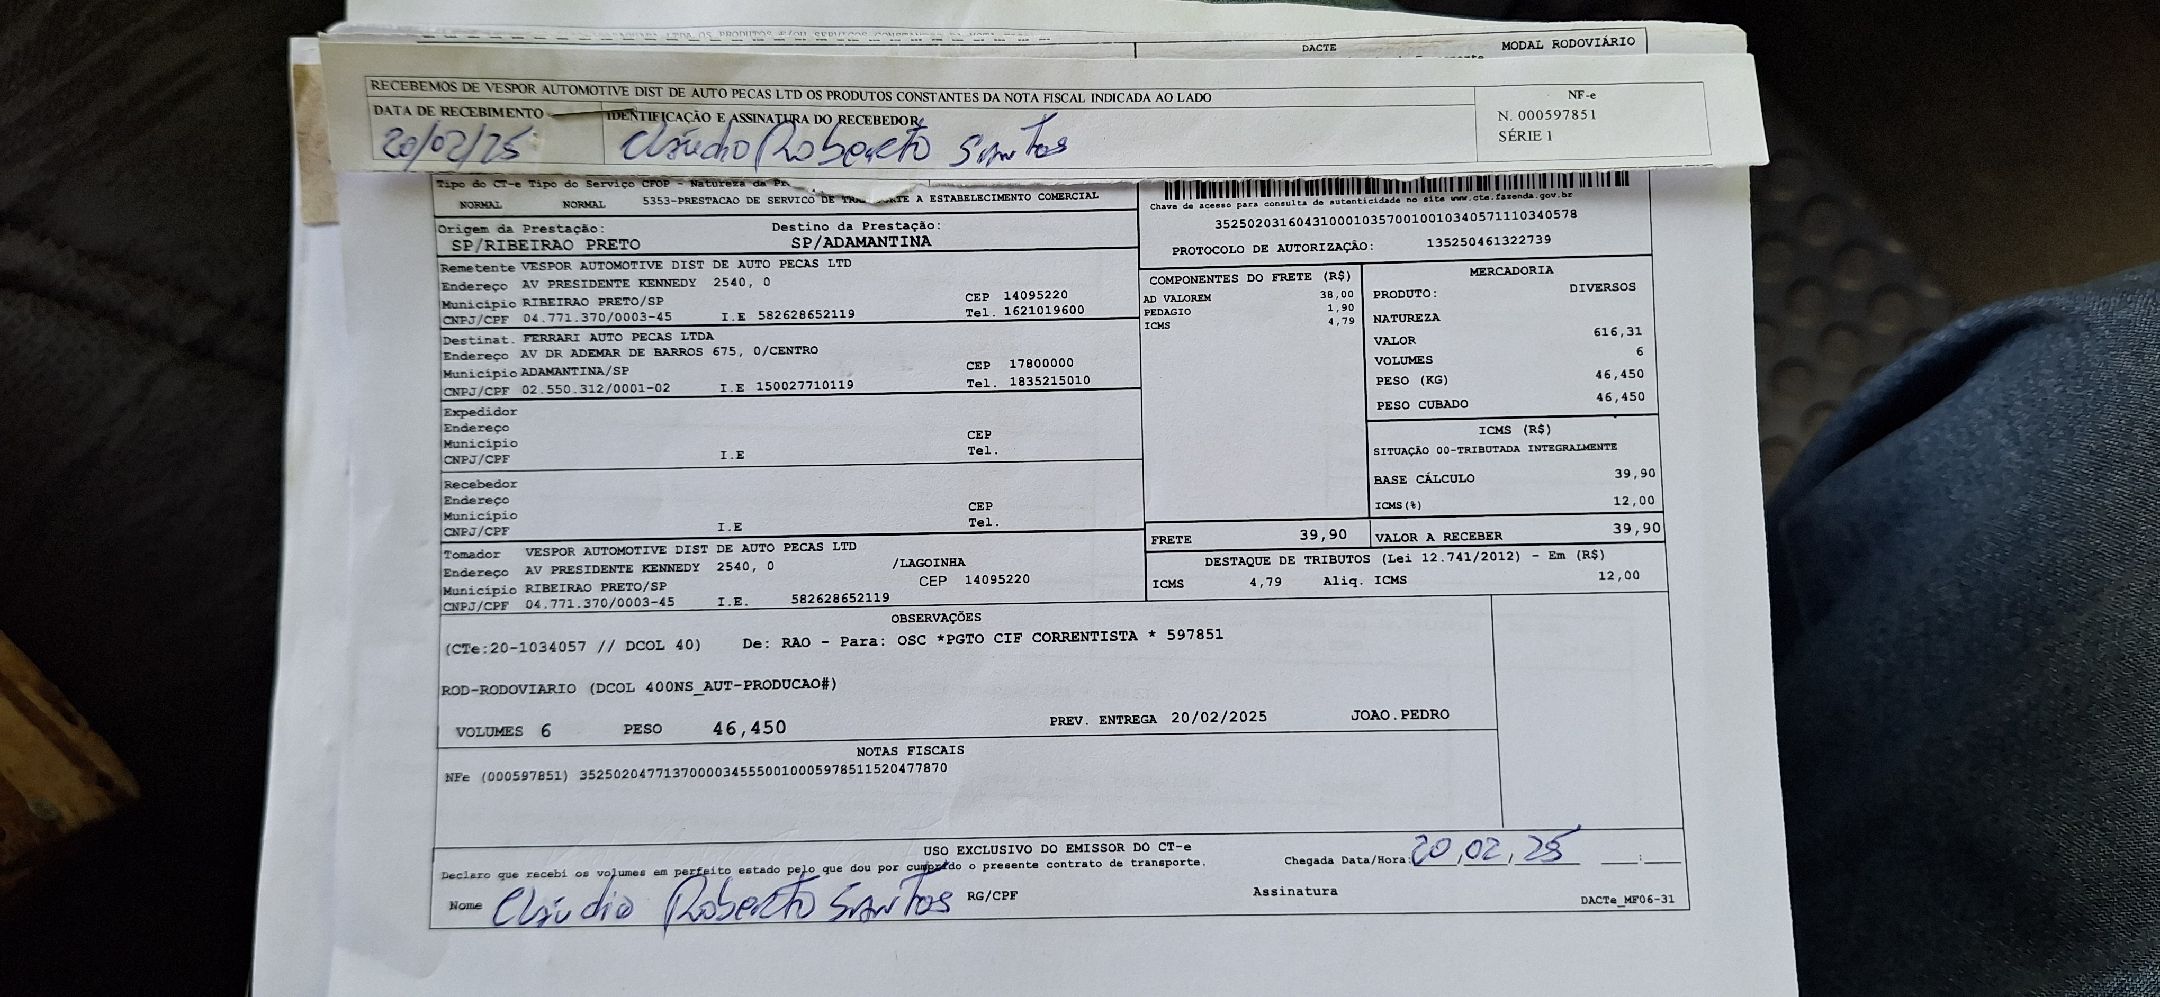 DACTE MODAL RODOVIÁRIO
RECEBEMOS DE VESPOR AUTOMOTIVE DIST DE AUTO PECAS LTD OS PRODUTOS CONSTANTES DA NOTA FISCAL INDICADA AO LADO
DATA DE RECEBIMENTO
20/02/25
IDENTIFICAÇÃO E ASSINATURA DO RECEBEDOR
Cláudio Roberto Santos
NF-e
N. 000597851
SÉRIE 1
Tipo do CT-e Tipo do Serviço CFOP - Natureza da
NORMAL NORMAL 5353-PRESTACAO DE SERVICO DE A ESTABELECIMENTO COMERCIAL
Origem da Prestação: Destino da Prestação:
SP/RIBEIRAO PRETO SP/ADAMANTINA
Chave de acesso para consulta de autenticidade no site www.cte.fazenda.gov.br
35250203160431000103570010010340571110340578
PROTOCOLO DE AUTORIZAÇÃO: 135250461322739
Remetente VESPOR AUTOMOTIVE DIST DE AUTO PECAS LTD
Endereço AV PRESIDENTE KENNEDY 2540, 0
Município RIBEIRAO PRETO/SP CEP 14095220
CNPJ/CPF 04.771.370/0003-45 I.E 582628652119 Tel. 1621019600
Destinat. FERRARI AUTO PECAS LTDA
Endereço AV DR ADEMAR DE BARROS 675, 0/CENTRO
Município ADAMANTINA/SP CEP 17800000
CNPJ/CPF 02.550.312/0001-02 I.E 150027710119 Tel. 1835215010
Expedidor
Endereço
Município CEP
CNPJ/CPF I.E Tel.
Recebedor
Endereço
Município CEP
CNPJ/CPF I.E Tel.
Tomador VESPOR AUTOMOTIVE DIST DE AUTO PECAS LTD
Endereço AV PRESIDENTE KENNEDY 2540, 0 /LAGOINHA
Município RIBEIRAO PRETO/SP CEP 14095220
CNPJ/CPF 04.771.370/0003-45 I.E. 582628652119
COMPONENTES DO FRETE (R$)
AD VALOREM 38,00
PEDAGIO 1,90
ICMS 4,79
MERCADORIA
PRODUTO: DIVERSOS
NATUREZA
VALOR 616,31
VOLUMES 6
PESO (KG) 46,450
PESO CUBADO 46,450
ICMS (R$)
SITUAÇÃO 00-TRIBUTADA INTEGRALMENTE
BASE CÁLCULO 39,90
ICMS(%) 12,00
FRETE 39,90 VALOR A RECEBER 39,90
DESTAQUE DE TRIBUTOS (Lei 12.741/2012) - Em (R$)
ICMS 4,79 Aliq. ICMS 12,00
OBSERVAÇÕES
(CTe:20-1034057 // DCOL 40) De: RAO - Para: OSC *PGTO CIF CORRENTISTA * 597851
ROD-RODOVIARIO (DCOL 400NS_AUT-PRODUCAO#)
VOLUMES 6 PESO 46,450 PREV. ENTREGA 20/02/2025 JOAO.PEDRO
NOTAS FISCAIS
NFe (000597851) 35250204771370000345550010005978511520477870
USO EXCLUSIVO DO EMISSOR DO CT-e
Declaro que recebi os volumes em perfeito estado pelo que dou por cumprido o presente contrato de transporte.
Chegada Data/Hora: 20,02,25 :
Nome Cláudio Roberto Santos RG/CPF Assinatura
DACTe_MF06-31